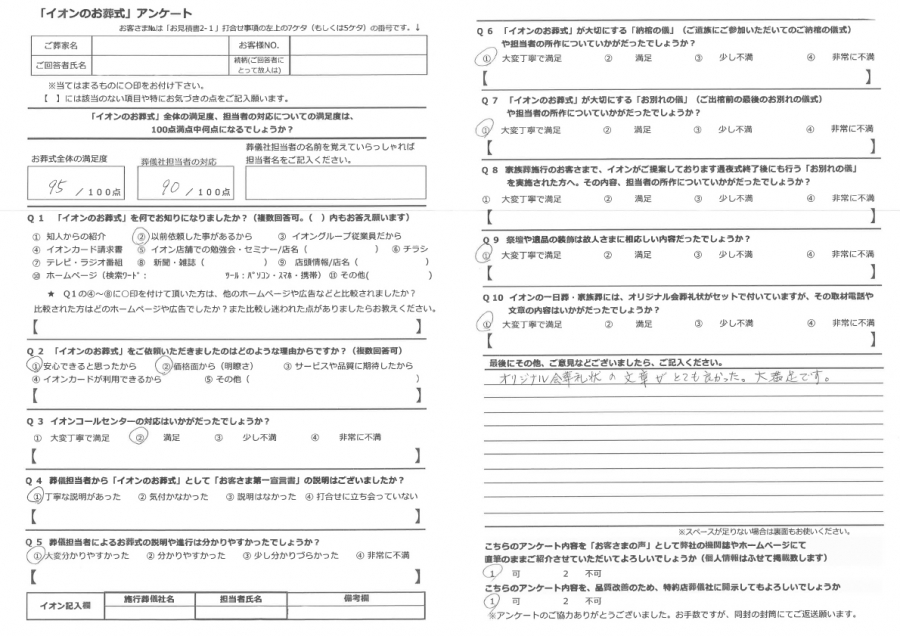 「イオンのお葬式」アンケート
お客さま№は「お見積書2-1」打合せ事項の左上の7ケタ（もしくは5ケタ）の番号です。↓
ご葬家名 お客様NO.
ご回答者氏名 続柄(ご回答者にとって故人は)
※当てはまるものに〇印をお付け下さい。
【　】には該当のない項目や特にお気づきの点をご記入願います。
「イオンのお葬式」全体の満足度、担当者の対応についての満足度は、
100点満点中何点になるでしょうか？
葬儀社担当者の名前を覚えていらっしゃれば
お葬式全体の満足度 葬儀社担当者の対応 担当者名をご記入ください。
95 / 100点 90 / 100点
Q１ 「イオンのお葬式」を何でお知りになりましたか？（複数回答可。（　）内もお答え願います）
① 知人からの紹介 ②以前依頼した事があるから ③ イオングループ従業員だから
④ イオンカード請求書 ⑤ イオン店舗での勉強会・セミナー/店名（　） ⑥ チラシ
⑦ テレビ・ラジオ番組 ⑧ 新聞・雑誌（　） ⑨ 店頭情報/店名（　）
⑩ ホームページ（検索ﾜｰﾄﾞ： ﾂｰﾙ：ﾊﾟｿｺﾝ・ｽﾏﾎ・携帯） ⑪ その他(　)
★ Q１の④～⑧に〇印を付けて頂いた方は、他のホームページや広告などと比較されましたか？
比較された方はどのホームページや広告でしたか？また比較し迷われた点がありましたらお教えください。
【　】
Q２ 「イオンのお葬式」をご依頼いただきましたのはどのような理由からですか？（複数回答可）
①安心できると思ったから ②価格面から（明瞭さ） ③ サービスや品質に期待したから
④ イオンカードが利用できるから ⑤ その他（　）
【　】
Q３ イオンコールセンターの対応はいかがだったでしょうか？
① 大変丁寧で満足 ② 満足 ③ 少し不満 ④ 非常に不満
【　】
Q４ 葬儀担当者から「イオンのお葬式」として「お客さま第一宣言書」の説明はございましたか？
①丁寧な説明があった ② 気付かなかった ③ 説明はなかった ④ 打合せに立ち会っていない
【　】
Q５ 葬儀担当者によるお葬式の説明や進行は分かりやすかったでしょうか？
①大変分かりやすかった ② 分かりやすかった ③ 少し分かりづらかった ④ 非常に不満
【　】
イオン記入欄 施行葬儀社名 担当者氏名 備考欄
Q６ 「イオンのお葬式」が大切にする「納棺の儀」（ご遺族にご参加いただいてのご納棺の儀式）
や担当者の所作についていかがだったでしょうか？
① 大変丁寧で満足 ② 満足 ③ 少し不満 ④ 非常に不満
【　】
Q７ 「イオンのお葬式」が大切にする「お別れの儀」（ご出棺前の最後のお別れの儀式）
や担当者の所作についていかがだったでしょうか？
① 大変丁寧で満足 ② 満足 ③ 少し不満 ④ 非常に不満
【　】
Q８ 家族葬施行のお客さまで、イオンがご提案しております通夜式終了後にも行う「お別れの儀」
を実施された方へ。その内容、担当者の所作についていかがだったでしょうか？
① 大変丁寧で満足 ② 満足 ③ 少し不満 ④ 非常に不満
【　】
Q９ 祭壇や遺品の装飾は故人さまに相応しい内容だったでしょうか？
① 大変丁寧で満足 ② 満足 ③ 少し不満 ④ 非常に不満
【　】
Q10 イオンの一日葬・家族葬には、オリジナル会葬礼状がセットで付いていますが、その取材電話や
文章の内容はいかがだったでしょうか？
① 大変丁寧で満足 ② 満足 ③ 少し不満 ④ 非常に不満
【　】
最後にその他、ご意見などございましたら、ご記入ください。
オリジナル会葬礼状の文章がとても良かった。大満足です。
※スペースが足りない場合は裏面もお使いください。
こちらのアンケート内容を「お客さまの声」として弊社の機関誌やホームページにて
直筆のままご紹介させていただいてよろしいでしょうか（個人情報はふせて掲載致します）
１ 可 ２ 不可
こちらのアンケート内容を、品質改善のため、特約店葬儀社に開示してもよろしいでしょうか
１ 可 ２ 不可
※アンケートのご協力ありがとうございました。お手数ですが、同封の封筒にてご返送願います。